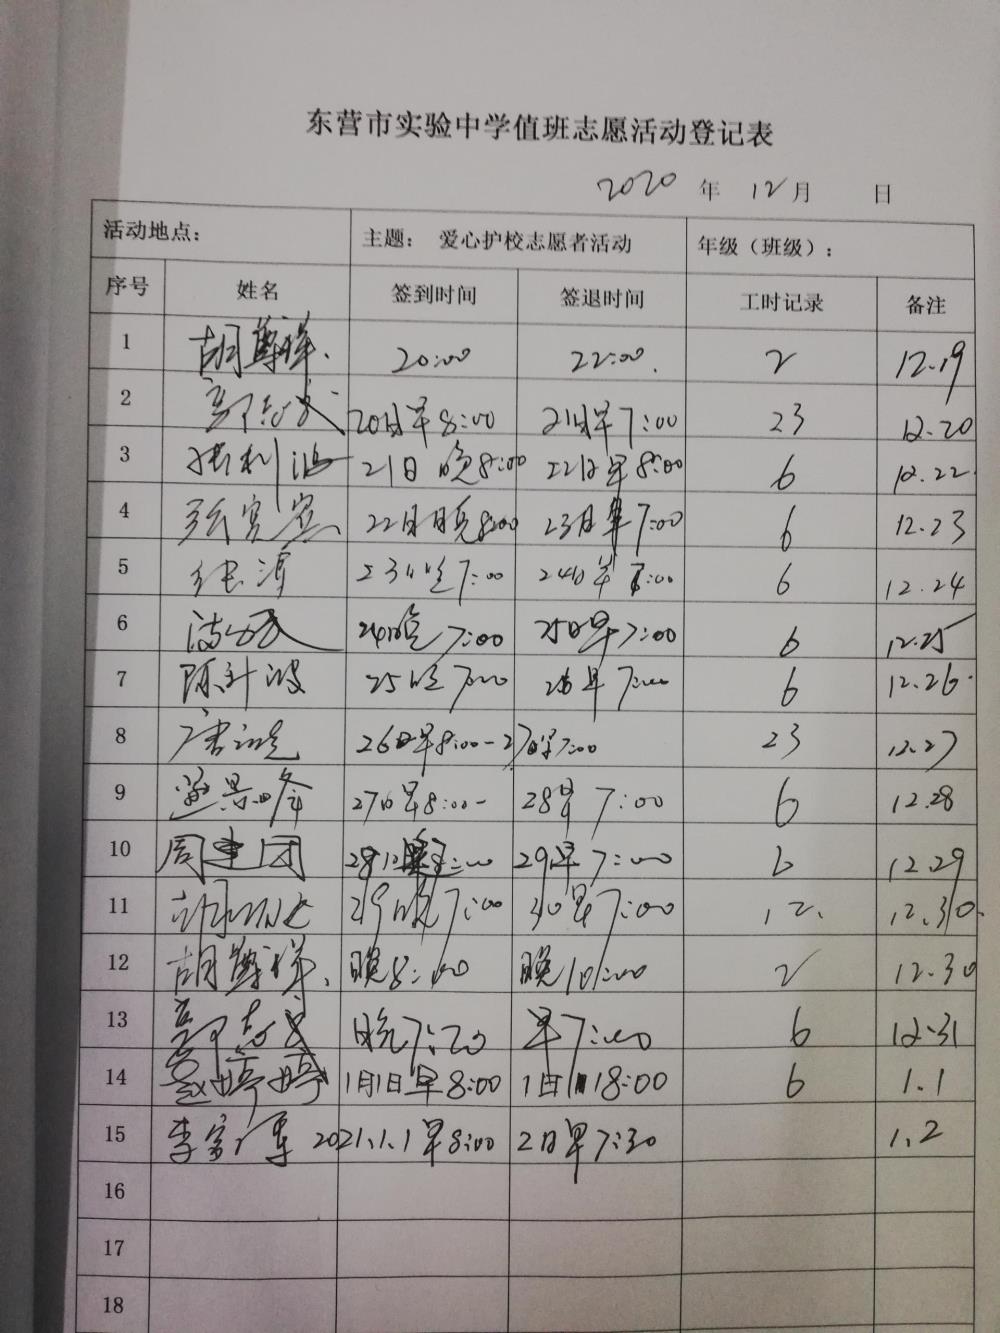 东营市实验中学值班志愿活动登记表
2020 年 12月 日
活动地点: 主题: 爱心护校志愿者活动 年级(班级):
序号 姓名 签到时间 签退时间 工时记录 备注
1 胡尊祥. 20:00 22:00. 2 12.19
2 20日早8:00 21日早7:00 23 12.20
3 张利波 21日晚8:00 22日早8:00 6 12.22.
4 22日晚8:00 23日早7:00 6 12.23
5 23晚7:00 24日早7:00 6 12.24
6 24晚7:00 25日早7:00 6 12.25
7 25晚7:00 26早7:00 6 12.26.
8 26日早8:00-27日早7:00 23 12.27
9 27日早8:00- 28早7:00 6 12.28
10 周建团 29早7:00 6 12.29
11 29晚7:00 30早7:00 12. 12.30.
12 胡尊祥. 晚8:00 晚10:00 2 12.30
13 晚7:20 早7:00 6 12.31
14 赵婷婷 1月1日早8:00 18:00 6 1.1
15 2021.1.1早8:00 2日早7:30 1.2
16
17
18